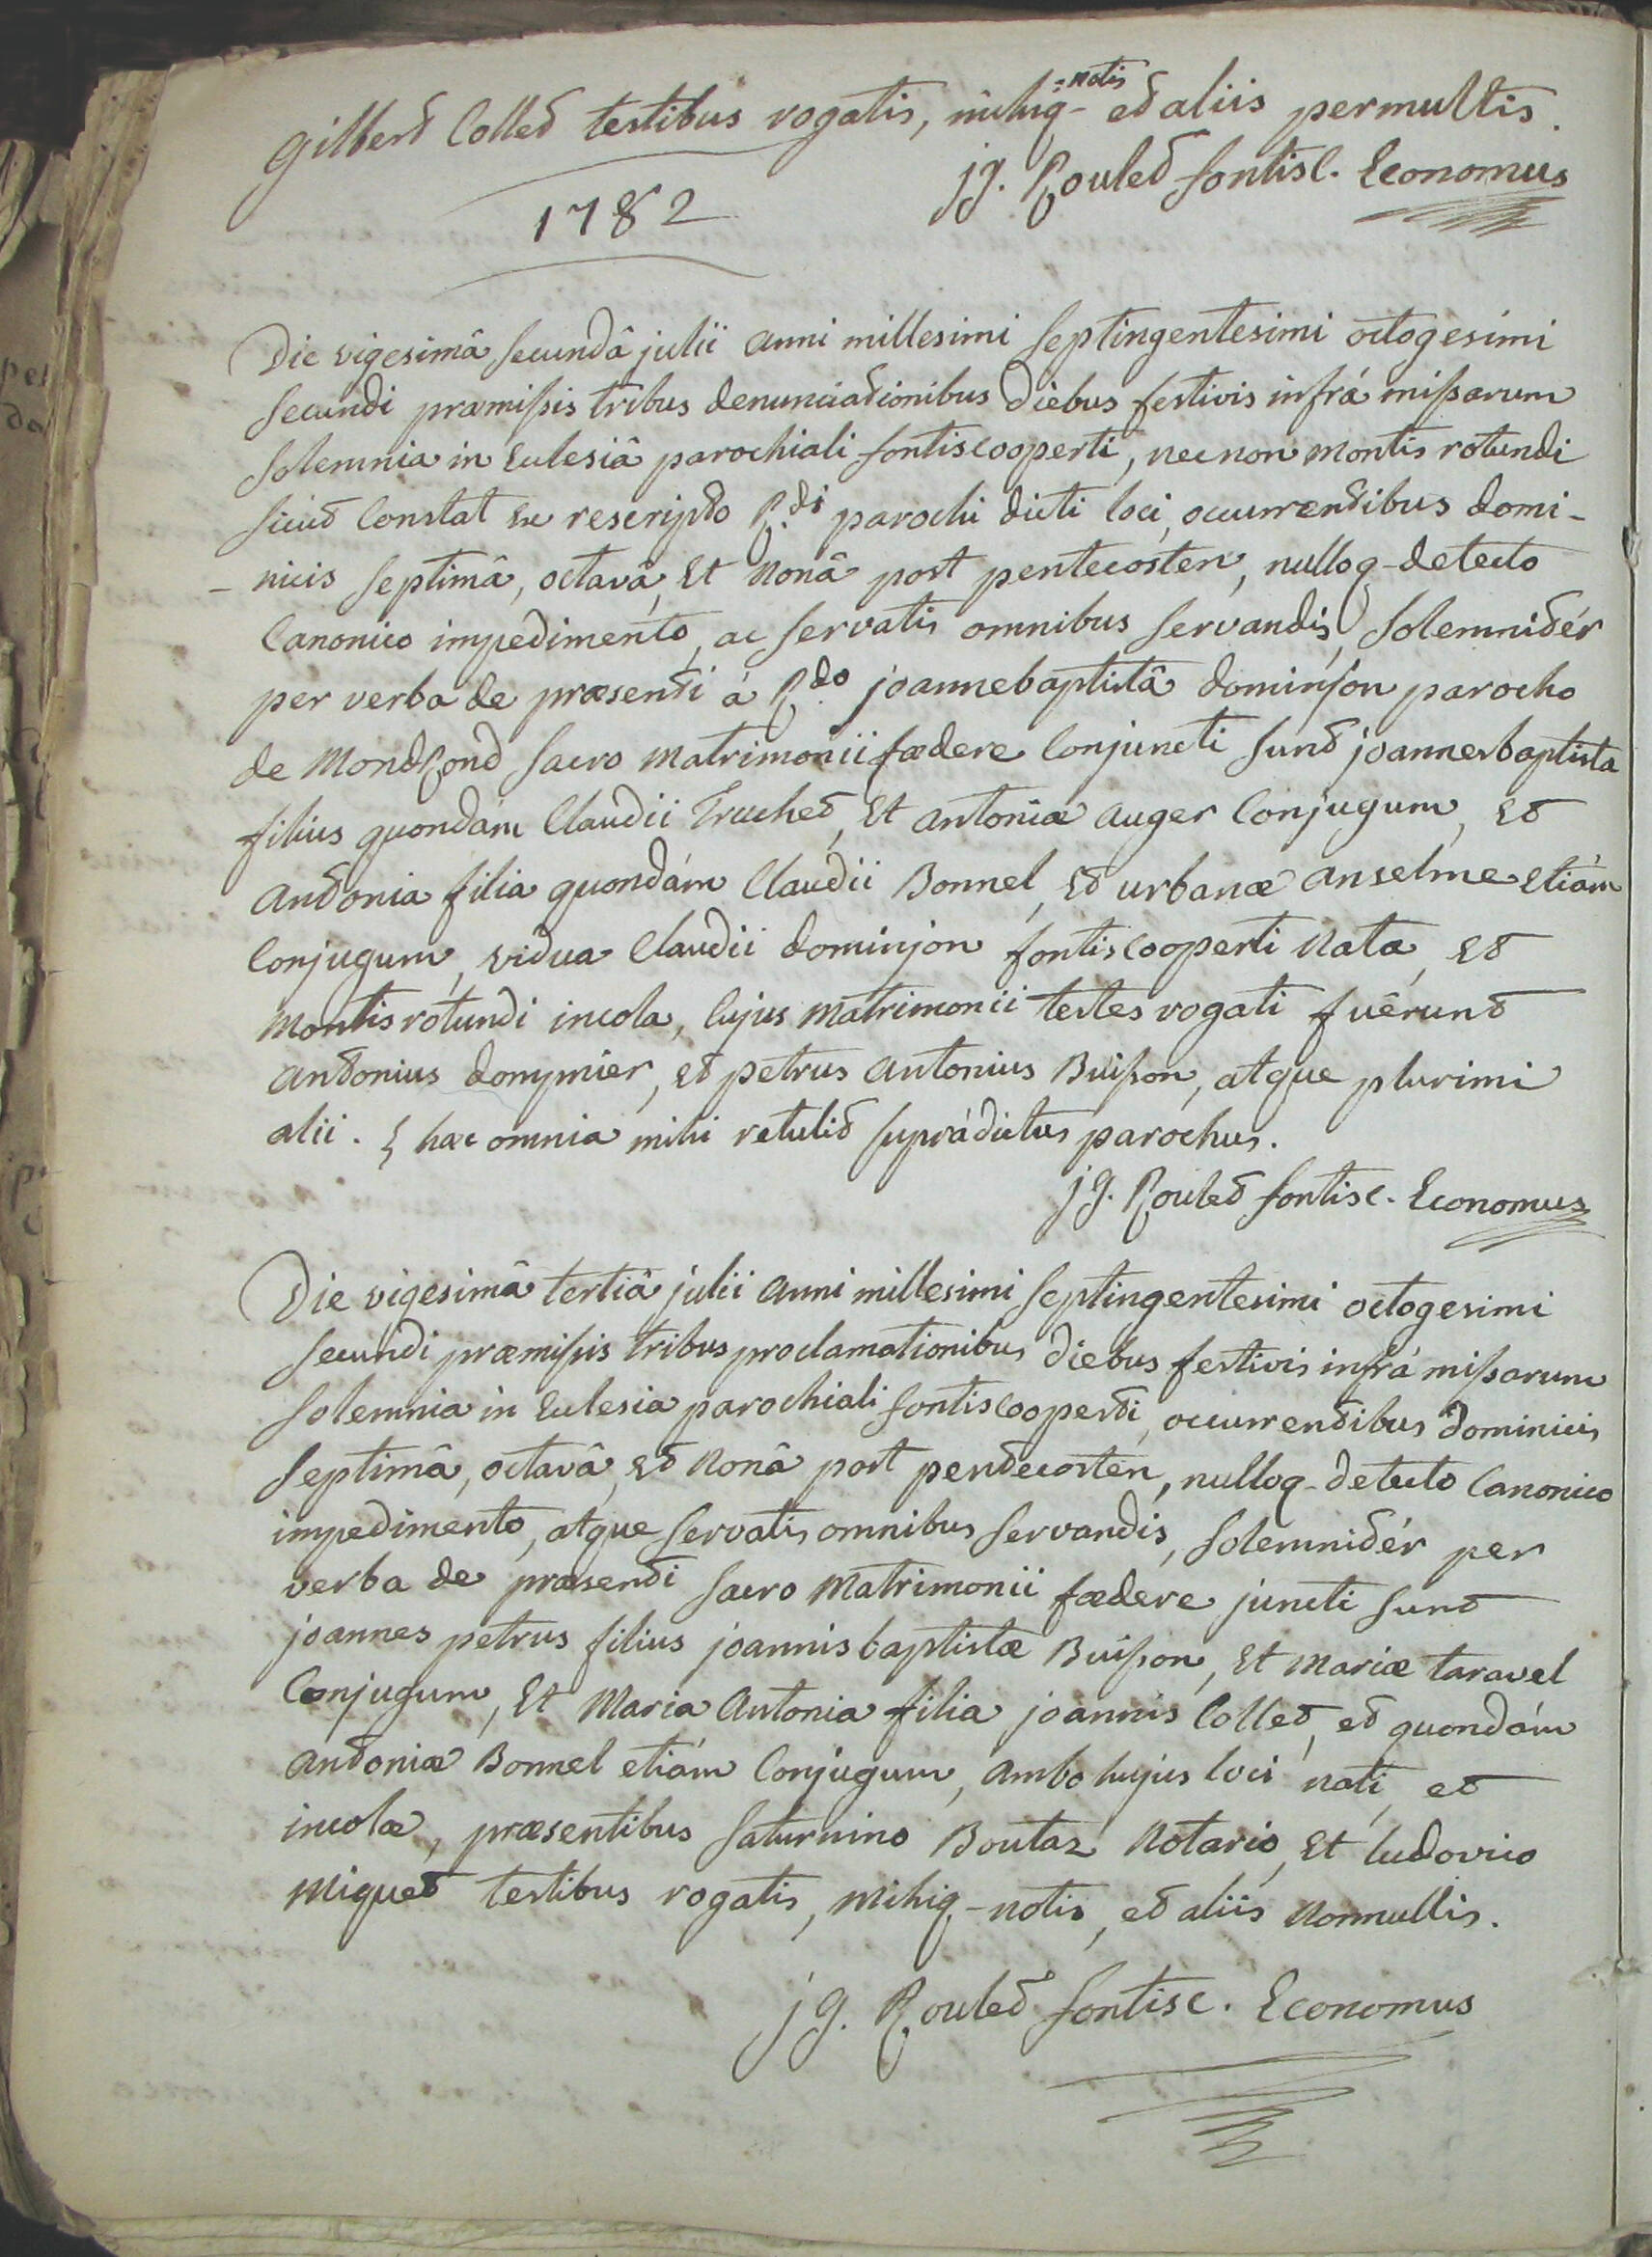 Gilbert Collet testibus rogatis, mihiq- =notis et aliis permultis.
jg. Roulet fontisc. Economus
1782
Die vigesimâ secundâ julii anni millesimi septingentesimi octogesimi
secundi præmissis tribus denunciationibus diebus festivis infrá missarum
solemnia in Eclesiâ parochiali fontiscooperti, necnon montis rotundi
sicut constat ex rescripto R.di parochi dicti loci, occurrentibus domi-
-nicis septimâ, octavâ, et nonâ post pentecosten, nulloq- detecto
canonico impedimento, ac servatis omnibus servandis, solemnitér
per verba de præsenti á R.do joannebaptistâ dominjon parocho
de MontRond sacro matrimonii fœdere conjuncti sunt joannesbaptista
filius quondám Claudii Truchet, et antoniæ auger conjugum, et
antonia filia quondám Claudii Bonnel, et urbanæ anselme etiám
conjugum, vidua Claudii dominjon fontiscooperti nata, et
montisrotundi incola, cujus matrimonii testes rogati fuêrunt
antonius dompnier, et petrus antonius Buisson, atque plurimi
alii. & hæc omnia mihi retulit suprádictus parochus.
jg. Roulet fontisc. Economus
Die vigesimâ tertiâ julii anni millesimi septingentesimi octogesimi
secundi præmissis tribus proclamationibus diebus festivis infrá missarum
solemnia in Eclesia parochiali fontiscooperti, occurrentibus dominicis
septimâ, octavâ, et nonâ post pentecosten, nulloq- detecto canonico
impedimento, atque servatis omnibus servandis, solemnitér per
verba de præsenti sacro matrimonii fœdere juncti sunt
joannes petrus filius joannisbaptistæ Buisson, et mariæ taravel
conjugum, et Maria Antonia filia joannis Collet, et quondám
antoniæ Bonnel etiám conjugum, ambo hujus loci nati, et
incolæ, præsentibus saturnino Boutaz notario, et ludovico
Miquet testibus rogatis, mihiq,-notis, et aliis nonnullis.
jg. Roulet fontisc. Economus